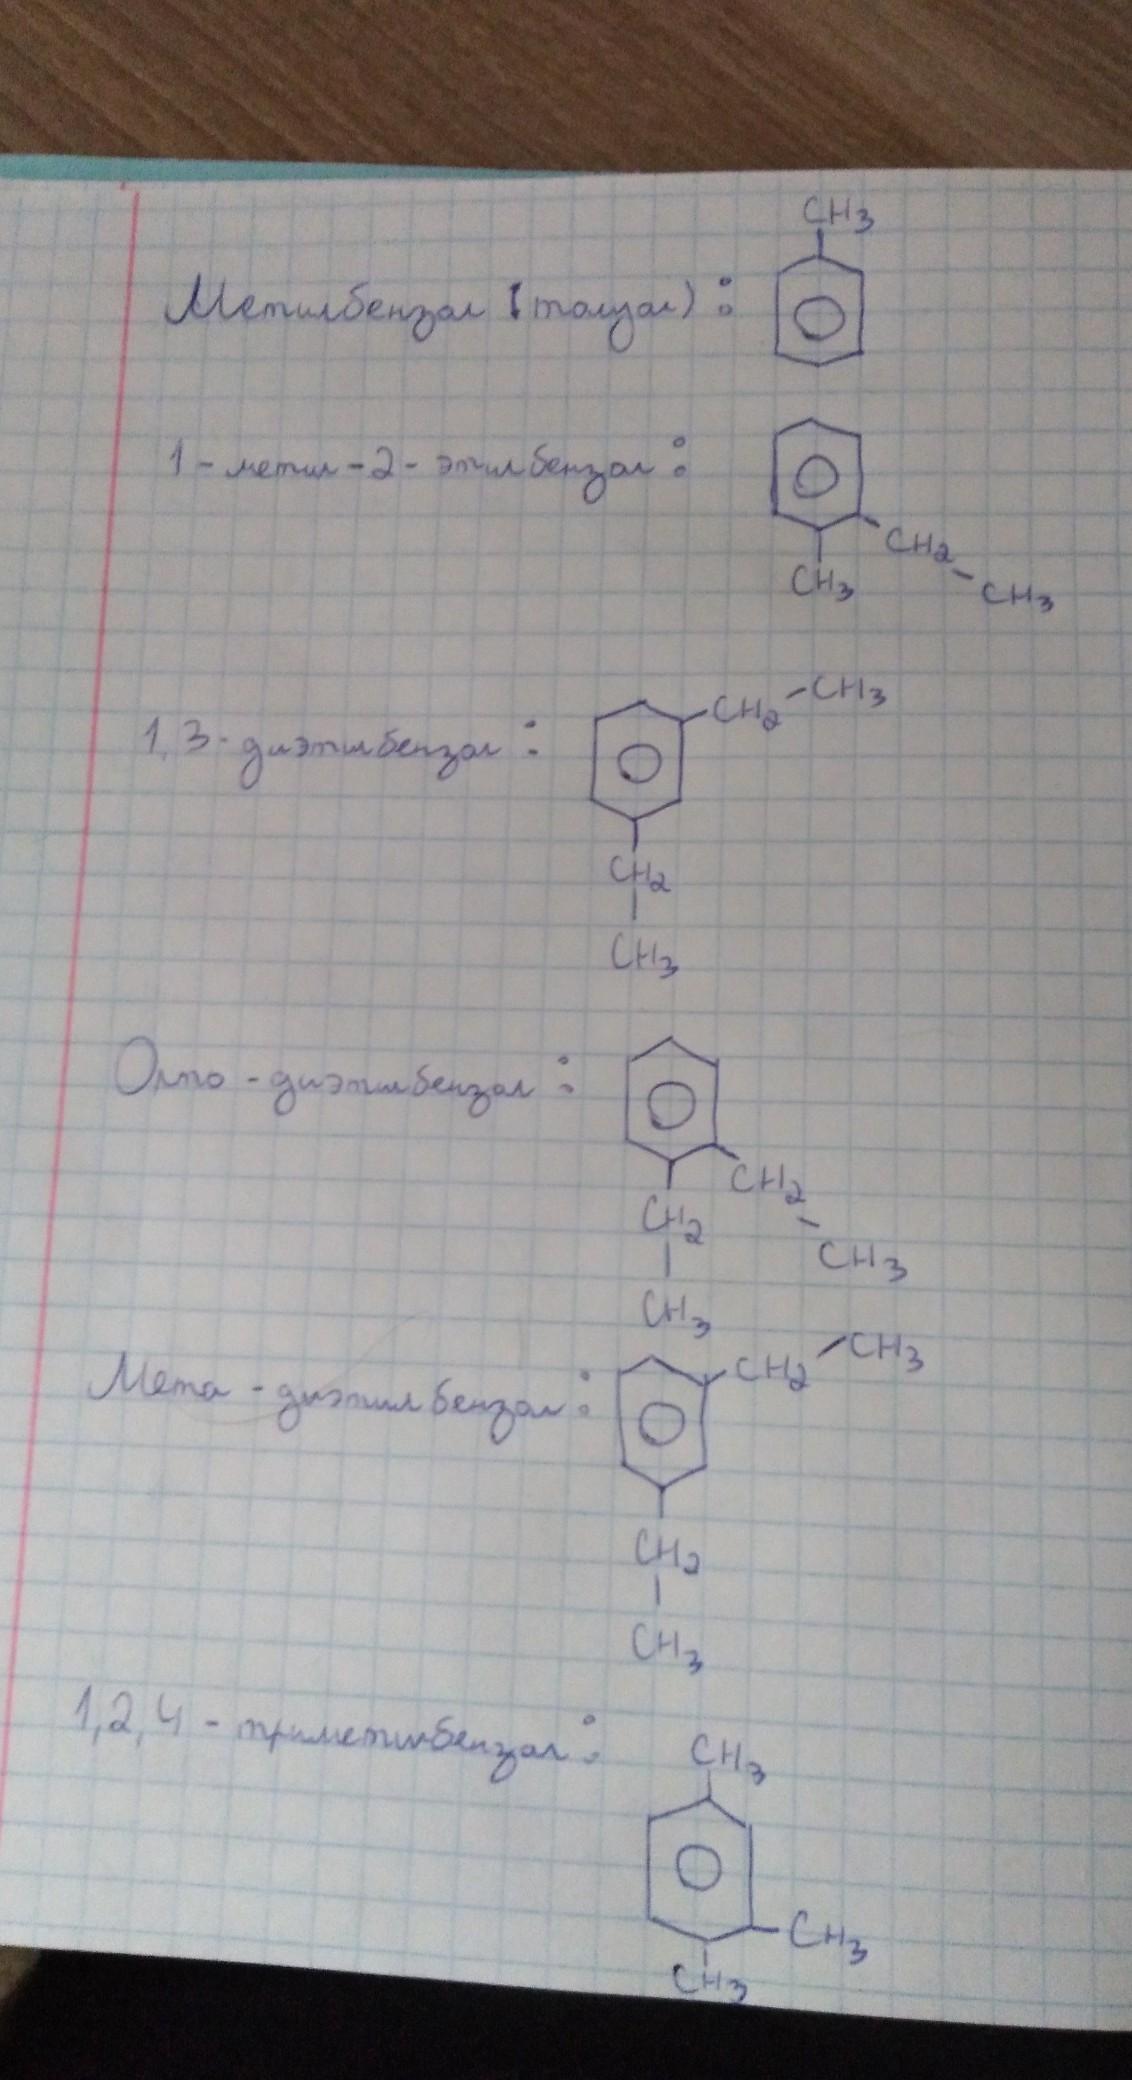 CH3
Метилбензол (толуол) :
1-метил-2-этилбензол :
CH2
CH3
CH3
CH3
1,3-диэтилбензол :
CH2
CH2
CH3
Орто-диэтилбензол :
CH2
CH2
CH3
CH3
CH3
Мета-диэтилбензол :
CH2
CH2
CH3
1,2,4-триметилбензол :
CH3
CH3
CH3